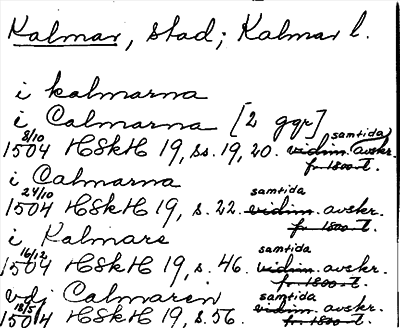 Kalmar, stad; Kalmar l.
i kalmarna
i Calmarna [2 ggr]
8/10 samtida
1504 HSkH 19, ss. 19, 20. vidim. avskr.
fr 1800-t.
i Calmarna
24/10 samtida
1504 HSkH 19, s. 22. vidim. avskr.
fr 1800-t.
i Kalmare
16/12 samtida
1504 HSkH 19, s. 46. vidim. avskr.
fr 1800-t.
vdj Calmaren
18/5 samtida
1504 HSkH 19, s. 56. vidim. avskr.
fr 1800-t.